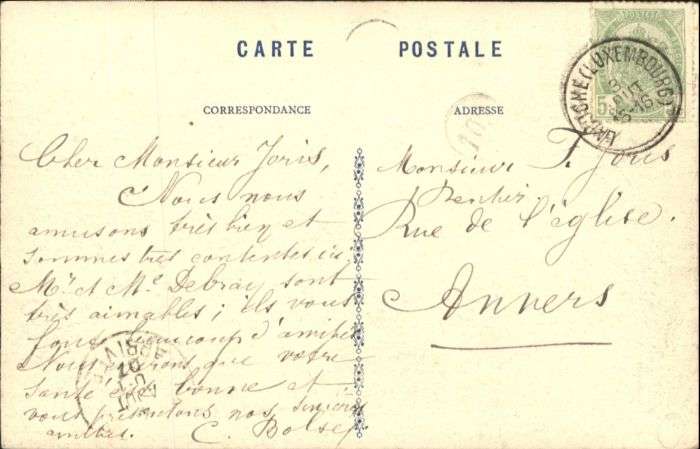 CARTE POSTALE
CORRESPONDANCE
Cher Monsieur Joris,
Nous nous
amusons très bien et
sommes très contentes ici
Mr. et Me. Debray sont
très aimables; ils vous
font beaucoup d'amitiés
Nous espérons que votre
santé est bonne et
vous présentons nos sincères
amitiés.
ADRESSE
Monsieur F. Joris
Rentier
Rue de l'église.
Anvers
LAROCHE (LUXEMBOURG)
AOUT
10
5